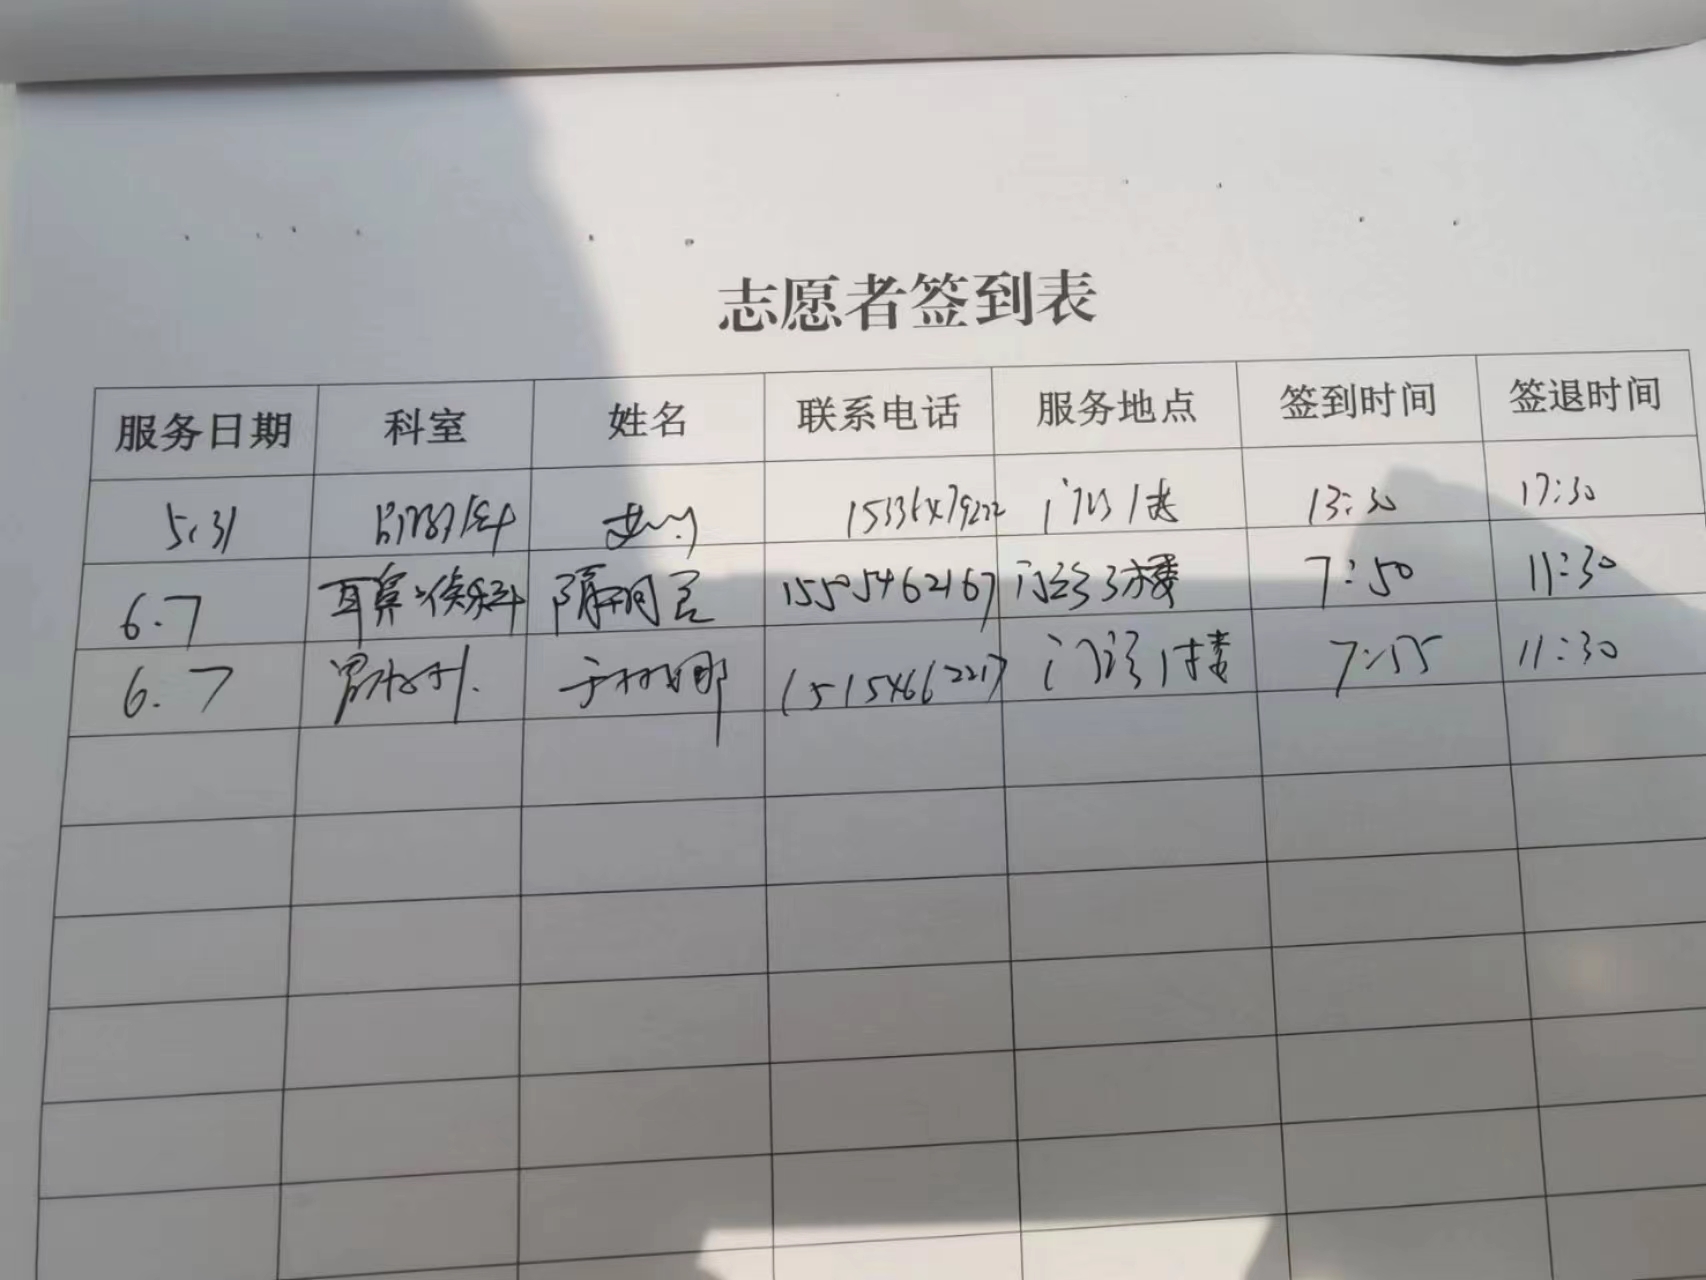 志愿者签到表
服务日期 科室 姓名 联系电话 服务地点 签到时间 签退时间
5.31 门诊1楼 13:30 17:30
6.7 耳鼻喉科 15505462167 门诊3楼 7:50 11:30
6.7 门诊1楼 11:30